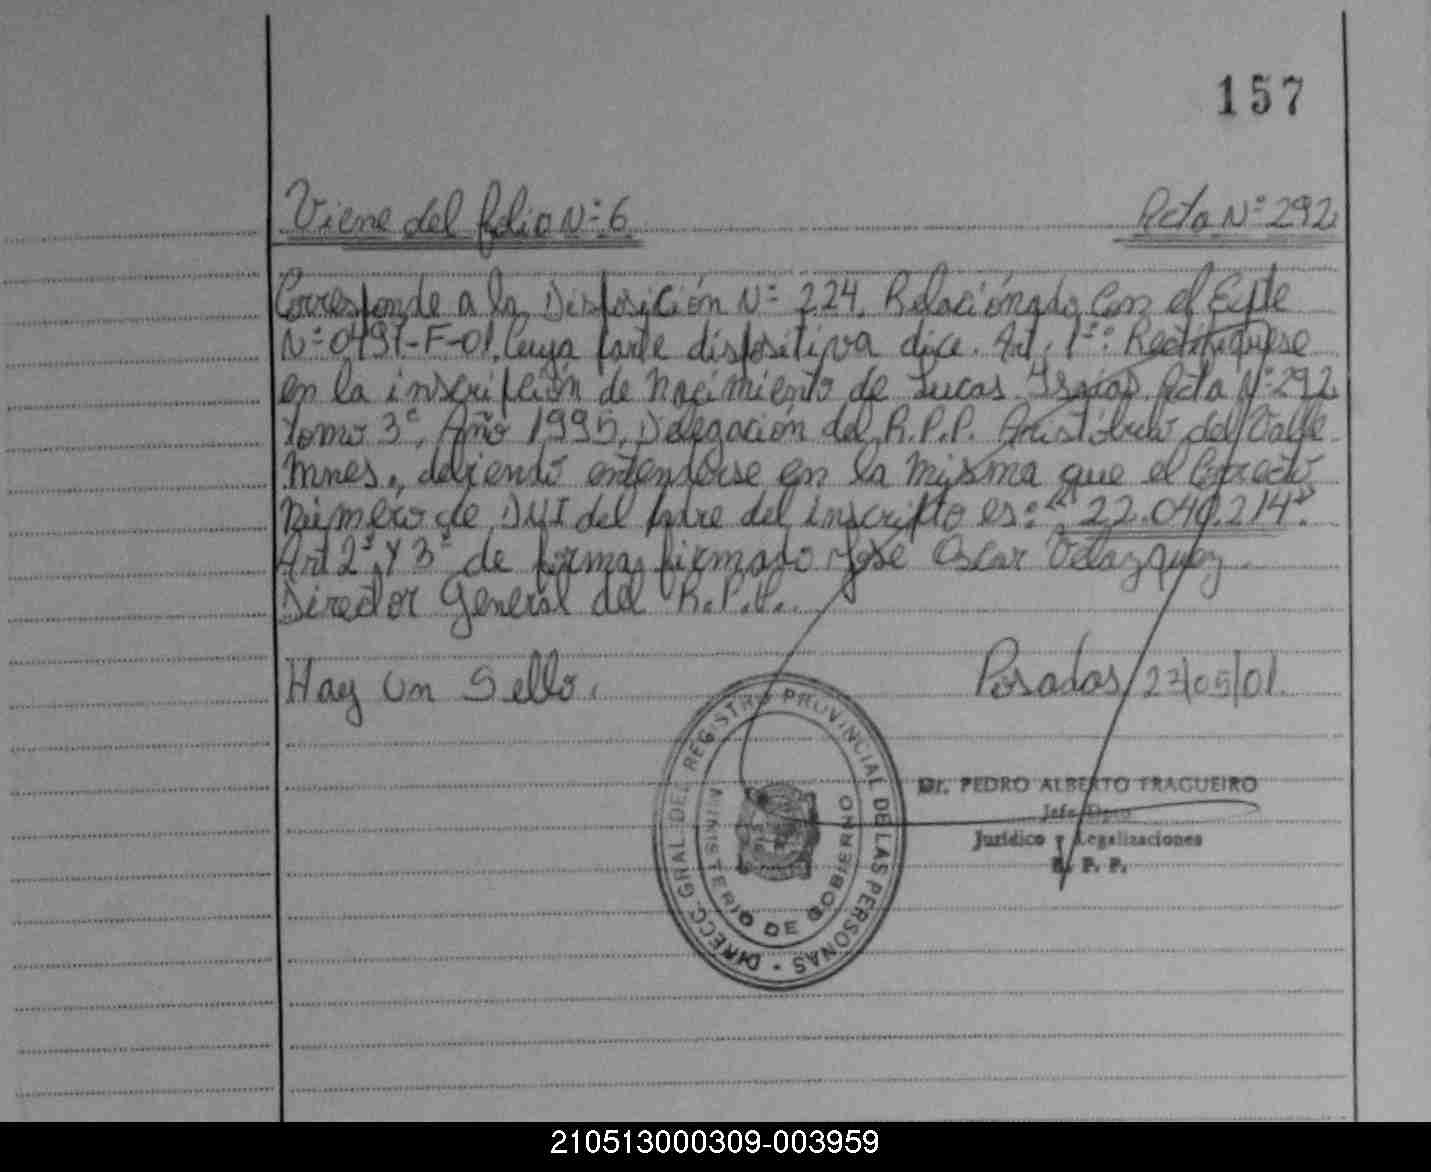 157
Viene del folio N=6 Acta N=292
Corresponde a la Disposición N= 224. Relacionado con el Expte
N=0491-F-01. Cuya parte dispositiva dice. Art. 1=: Rectifiquese
en la inscripción de nacimiento de Lucas Isaias. Acta N=292
Tomo 3º, Año 1995, Delegación del R.P.P. Aristóbulo del Valle
Mnes., debiendo entenderse en la misma que el correcto
número de DNI del padre del inscripto es: "22.040.214".
Art 2º y 3º de forma, firmado Jose Oscar Velazquez.
Director General del R.P.P..
Hay un Sello. Posados, 22/05/01.
DIRECC. GRAL. DEL REGISTRO PROVINCIAL DE LAS PERSONAS
MINISTERIO DE GOBIERNO
Dr. PEDRO ALBERTO FRAGUEIRO
Jefe Dpto
Jurídico y Legalizaciones
R. P. P.
210513000309-003959